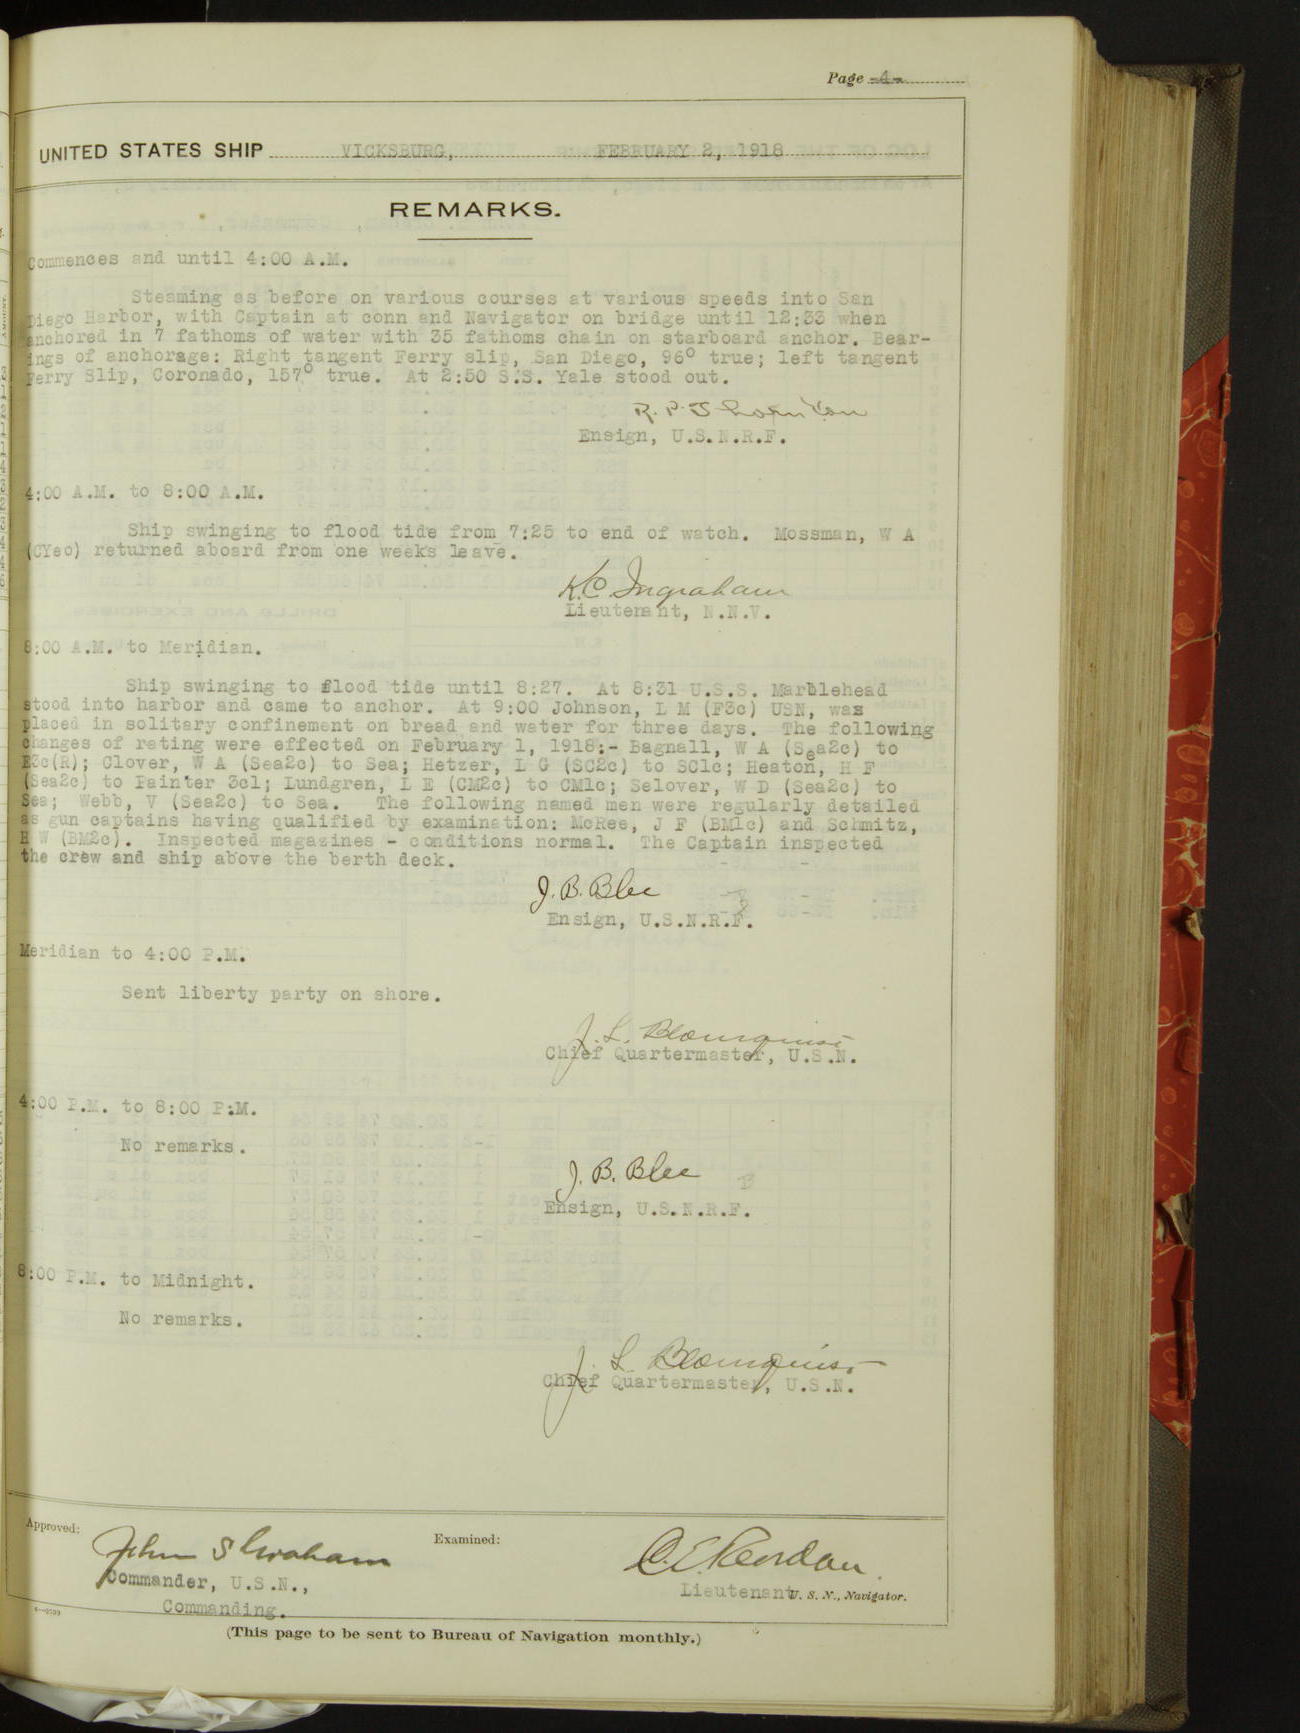 Page -4-
UNITED STATES SHIP VICKSBURG, FEBRUARY 2, 1918
REMARKS.
Commences and until 4:00 A.M.
Steaming as before on various courses at various speeds into San
Diego Harbor, with Captain at conn and Navigator on bridge until 12:33 when
anchored in 7 fathoms of water with 35 fathoms chain on starboard anchor. Bear-
ings of anchorage: Right tangent Ferry slip, San Diego, 96° true; left tangent
Ferry Slip, Coronado, 157° true. At 2:50 S.S. Yale stood out.
R. P. Thornton
Ensign, U.S.N.R.F.
4:00 A.M. to 8:00 A.M.
Ship swinging to flood tide from 7:25 to end of watch. Mossman, W A
(CYeo) returned aboard from one weeks leave.
K.C. Ingraham
Lieutenant, N.N.V.
8:00 A.M. to Meridian.
Ship swinging to flood tide until 8:27. At 8:31 U.S.S. Marblehead
stood into harbor and came to anchor. At 9:00 Johnson, L M (F3c) USN, was
placed in solitary confinement on bread and water for three days. The following
changes of rating were effected on February 1, 1918:- Bagnall, W A (Sea2c) to
E3c(R); Clover, W A (Sea2c) to Sea; Hetzer, L G (SC2c) to SC1c; Heaton, H F
(Sea2c) to Painter 3cl; Lundgren, L E (CM2c) to CM1c; Selover, W D (Sea2c) to
Sea; Webb, V (Sea2c) to Sea. The following named men were regularly detailed
as gun captains having qualified by examination: McRee, J F (BM1c) and Schmitz,
H W (BM2c). Inspected magazines - conditions normal. The Captain inspected
the crew and ship above the berth deck.
J. B. Blee
Ensign, U.S.N.R.F.
Meridian to 4:00 P.M.
Sent liberty party on shore.
J. L. Blomquist
Chief Quartermaster, U.S.N.
4:00 P.M. to 8:00 P.M.
No remarks.
J. B. Blee
Ensign, U.S.N.R.F.
8:00 P.M. to Midnight.
No remarks.
J. L. Blomquist
Chief Quartermaster, U.S.N.
Approved:
Examined:
John S Graham
C. E. Reordan
Commander, U.S.N.,
Lieutenant U. S. N., Navigator.
Commanding.
(This page to be sent to Bureau of Navigation monthly.)